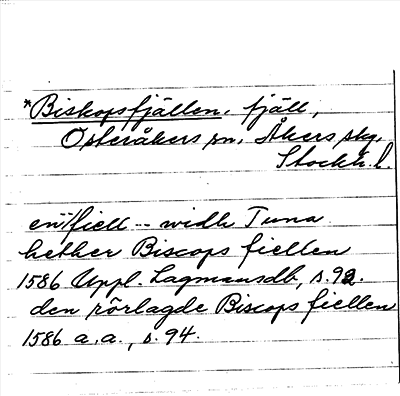 *Biskopsfjällen, fjäll,
Österåkers sn, Åkers skg,
Stockh. l.
en fiell -- widh Tuna
hether Biscops fiellen
1586 Uppl. Lagmansdb, s. 92.
den rörlagde Biscops fiellen
1586 a.a., s. 94.